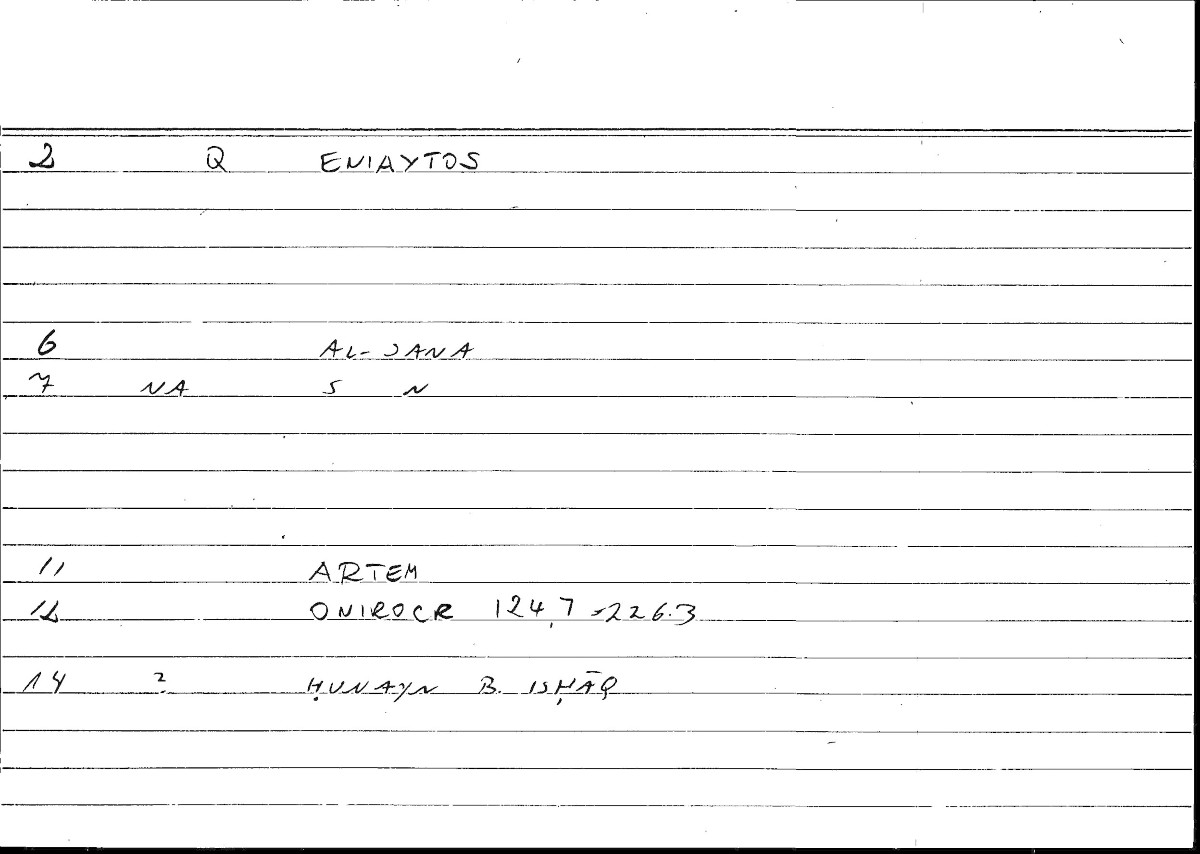 2 Q ENIAYTOS
6 AL-SANA
7 NA S N
11 ARTEM
12 ONIROCR 124,7 = 226.3
14 ? ḤUNAYN B. ISḤĀQ